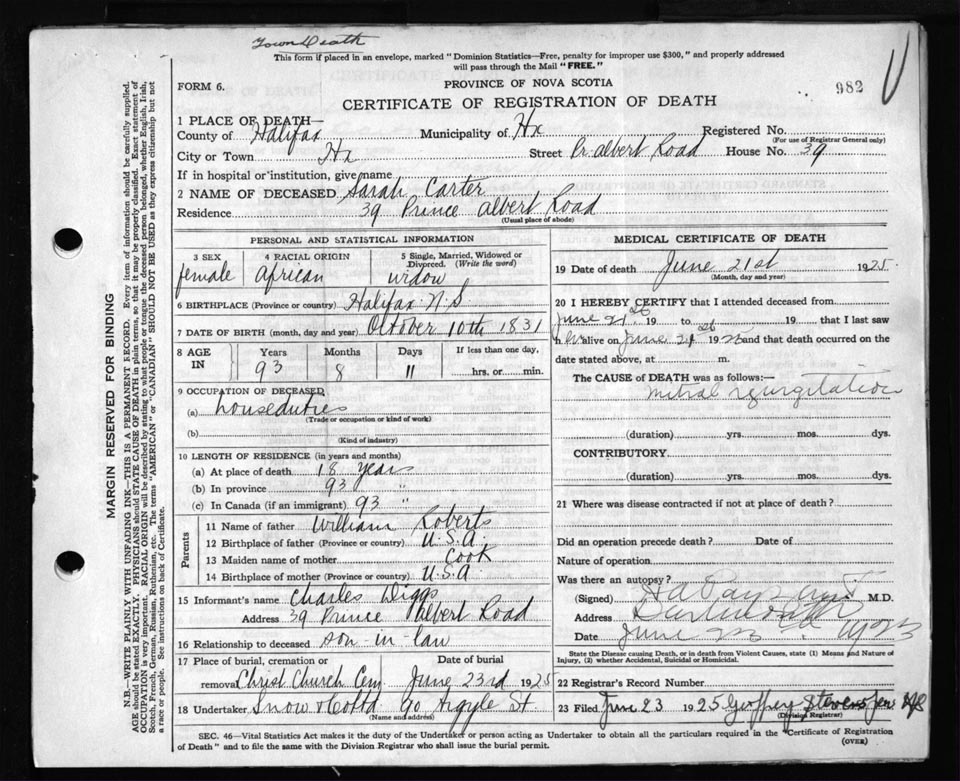 Town Death
This form if placed in an envelope, marked "Dominion Statistics—Free, penalty for improper use $300," and properly addressed
will pass through the Mail "FREE."
FORM 6.
PROVINCE OF NOVA SCOTIA
982
CERTIFICATE OF REGISTRATION OF DEATH
1 PLACE OF DEATH—
County of Halifax Municipality of Hx Registered No.
(For use of Registrar General only)
City or Town Hx Street Pr. albert Road House No. 39
If in hospital or institution, give name
2 NAME OF DECEASED Sarah Carter
Residence 39 Prince albert Road
(Usual place of abode)
PERSONAL AND STATISTICAL INFORMATION
3 SEX 4 RACIAL ORIGIN 5 Single, Married, Widowed or
Divorced. (Write the word)
female african widow
6 BIRTHPLACE (Province or country) Halifax N.S
7 DATE OF BIRTH (month, day and year) October 10th 1831
8 AGE IN Years Months Days If less than one day,
93 8 11 hrs. or min.
9 OCCUPATION OF DECEASED
(a) houseduties
(Trade or occupation or kind of work)
(b)
(Kind of industry)
10 LENGTH OF RESIDENCE (in years and months)
(a) At place of death 18 years
(b) In province 93 "
(c) In Canada (if an immigrant) 93 "
Parents
11 Name of father William Roberts
12 Birthplace of father (Province or country) U.S.A.
13 Maiden name of mother Cook
14 Birthplace of mother (Province or country) U.S.A
15 Informant's name Charles Diggs
Address 39 Prince albert Road
16 Relationship to deceased son-in-law
17 Place of burial, cremation or Date of burial
removal Christ Church Cem June 23rd 1925
18 Undertaker Snow 90 Argyle St.
(Name and address)
MEDICAL CERTIFICATE OF DEATH
19 Date of death June 21st 1925
(Month, day and year)
20 I HEREBY CERTIFY that I attended deceased from
June 21st 19 to 19 that I last saw
h alive on June 21st 1925 and that death occurred on the
date stated above, at m.
The CAUSE of DEATH was as follows:—
mitral regurgitation
(duration) yrs. mos. dys.
CONTRIBUTORY
(duration) yrs. mos. dys.
21 Where was disease contracted if not at place of death?
Did an operation precede death? Date of
Nature of operation
Was there an autopsy?
(Signed) M.D.
Address Dartmouth
Date June
State the Disease causing Death, or in death from Violent Causes, state (1) Means and Nature of
Injury, (2) whether Accidental, Suicidal or Homicidal.
22 Registrar's Record Number
23 Filed June 23 1925 Geoffrey Stevens
(Division Registrar)
SEC. 46—Vital Statistics Act makes it the duty of the Undertaker or person acting as Undertaker to obtain all the particulars required in the "Certificate of Registration
of Death" and to file the same with the Division Registrar who shall issue the burial permit.
(OVER)
MARGIN RESERVED FOR BINDING
N.B.—WRITE PLAINLY WITH UNFADING INK—THIS IS A PERMANENT RECORD. Every item of information should be carefully supplied.
AGE should be stated EXACTLY. PHYSICIANS should STATE CAUSE OF DEATH in plain terms, so that it may be properly classified. Exact statement of
OCCUPATION is very important. RACIAL ORIGIN will be described by stating to what people, or tongue the deceased person belonged, whether English, Irish,
Scotch, French, German, Russian, Ruthenian, etc. The terms "AMERICAN" or "CANADIAN" SHOULD NOT BE USED as they express citizenship but not
a race or people. See instructions on back of Certificate.